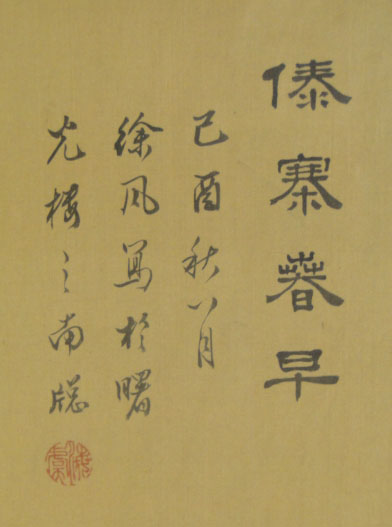 傣寨春早
己酉秋八月
徐风写於曙
光楼之南窓